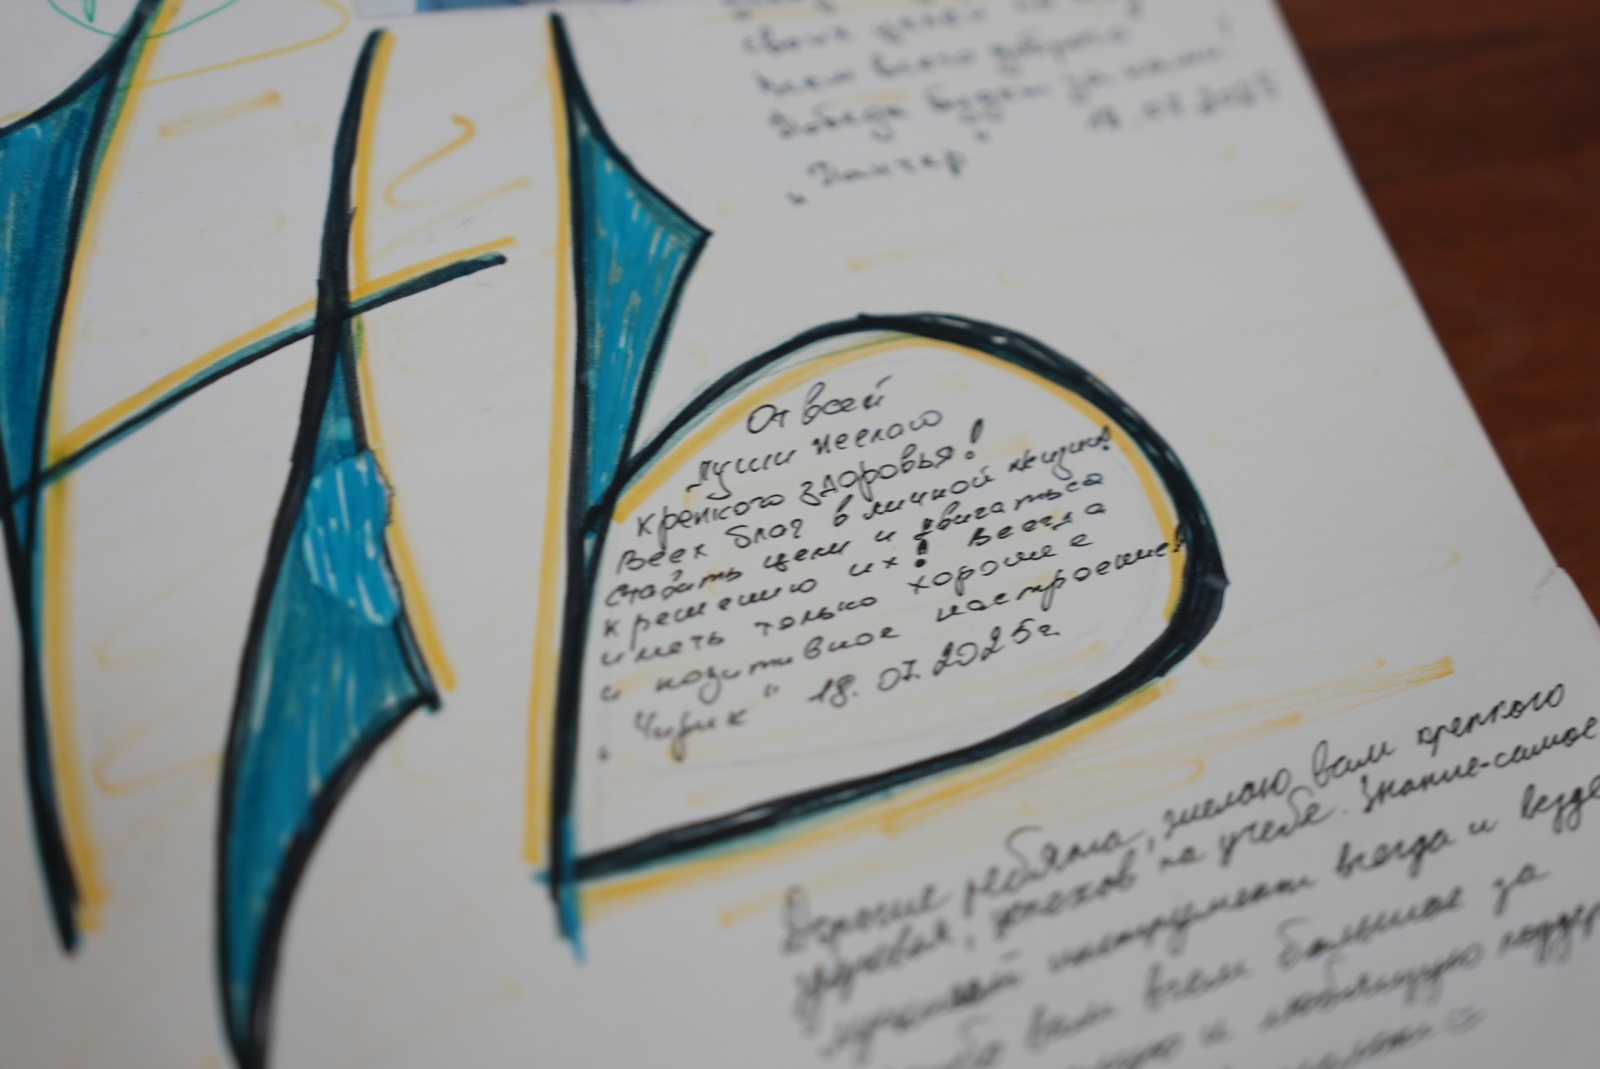 своих целей
Всем всего доброго
Победа будет за нами!
18.07.2025
"
От всей
души желаю
крепкого здоровья!
Всех благ в личной жизни!
Ставить цели и двигаться
к решению их! Всегда
иметь только хорошее
и позитивное настроение!
„Чирик" 18.07.2025г.
Дорогие ребята, желаю вам крепкого
здоровья, успехов на учебе. Знание-самое
лучший инструмент всегда и везде
вам всем большое за
и